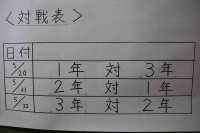 〈対戦表〉
日付
5/20 1年 対 3年
5/21 2年 対 1年
5/22 3年 対 2年